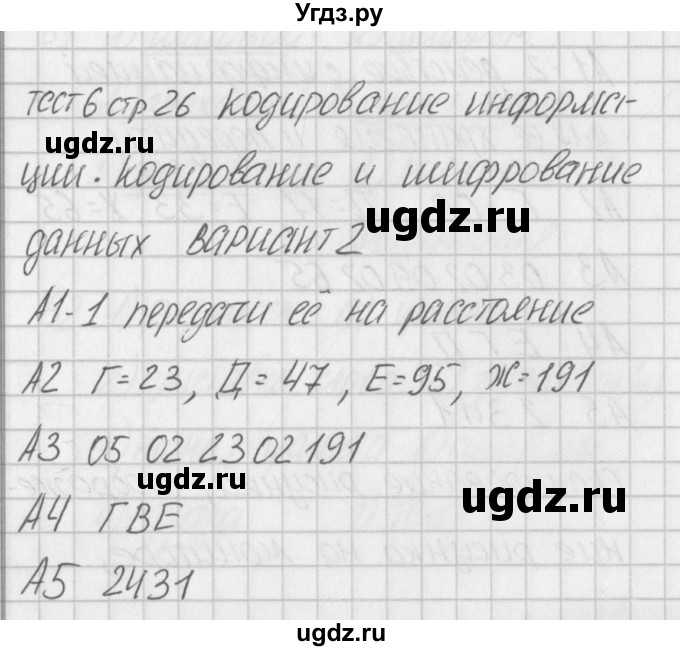 Угдз.ру
тест 6 стр 26 кодирование информа-
ugdz.ru
ции. кодирование и шифрование
ugdz.ru
данных вариант 2
А1-1 передачи её на расстояние
А2 Г=23, Д=47, Е=95, Ж=191
А3 05 02 23 02 191
ugdz.ru
ugdz.ru
А4 ГВЕ
А5 2431
ugdz.ru
ugdz.ru